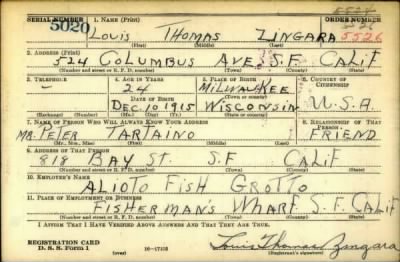 SERIAL NUMBER 1. NAME (Print) ORDER NUMBER
5534
5020 536
LOUIS THOMAS ZINGARA 5526
(First) (Middle) (Last)
2. ADDRESS (Print)
524 COLUMBUS AVE. S.F. CALIF
(Number and street or R. F. D. number) (Town) (County) (State)
3. TELEPHONE 4. AGE IN YEARS 5. PLACE OF BIRTH 6. COUNTRY OF CITIZENSHIP
– 24 MILWAUKEE
DATE OF BIRTH (Town or county)
DEC. 10 1915 WISCONSIN U.S.A.
(Exchange) (Number) (Mo.) (Day) (Yr.) (State or country)
7. NAME OF PERSON WHO WILL ALWAYS KNOW YOUR ADDRESS 8. RELATIONSHIP OF THAT PERSON
MR. PETER TARTAINO FRIEND
(Mr., Mrs., Miss) (First) (Middle) (Last)
9. ADDRESS OF THAT PERSON
818 BAY ST. S.F CALIF
(Number and street or R. F. D. number) (Town) (County) (State)
10. EMPLOYER'S NAME
ALIOTO FISH GROTTO
11. PLACE OF EMPLOYMENT OR BUSINESS
FISHERMAN'S WHARF S.F. CALIF
(Number and street or R. F. D. number) (Town) (County) (State)
I AFFIRM THAT I HAVE VERIFIED ABOVE ANSWERS AND THAT THEY ARE TRUE.
REGISTRATION CARD
D. S. S. Form 1 16-17105 Louis Thomas Zingara
(Registrant's signature)